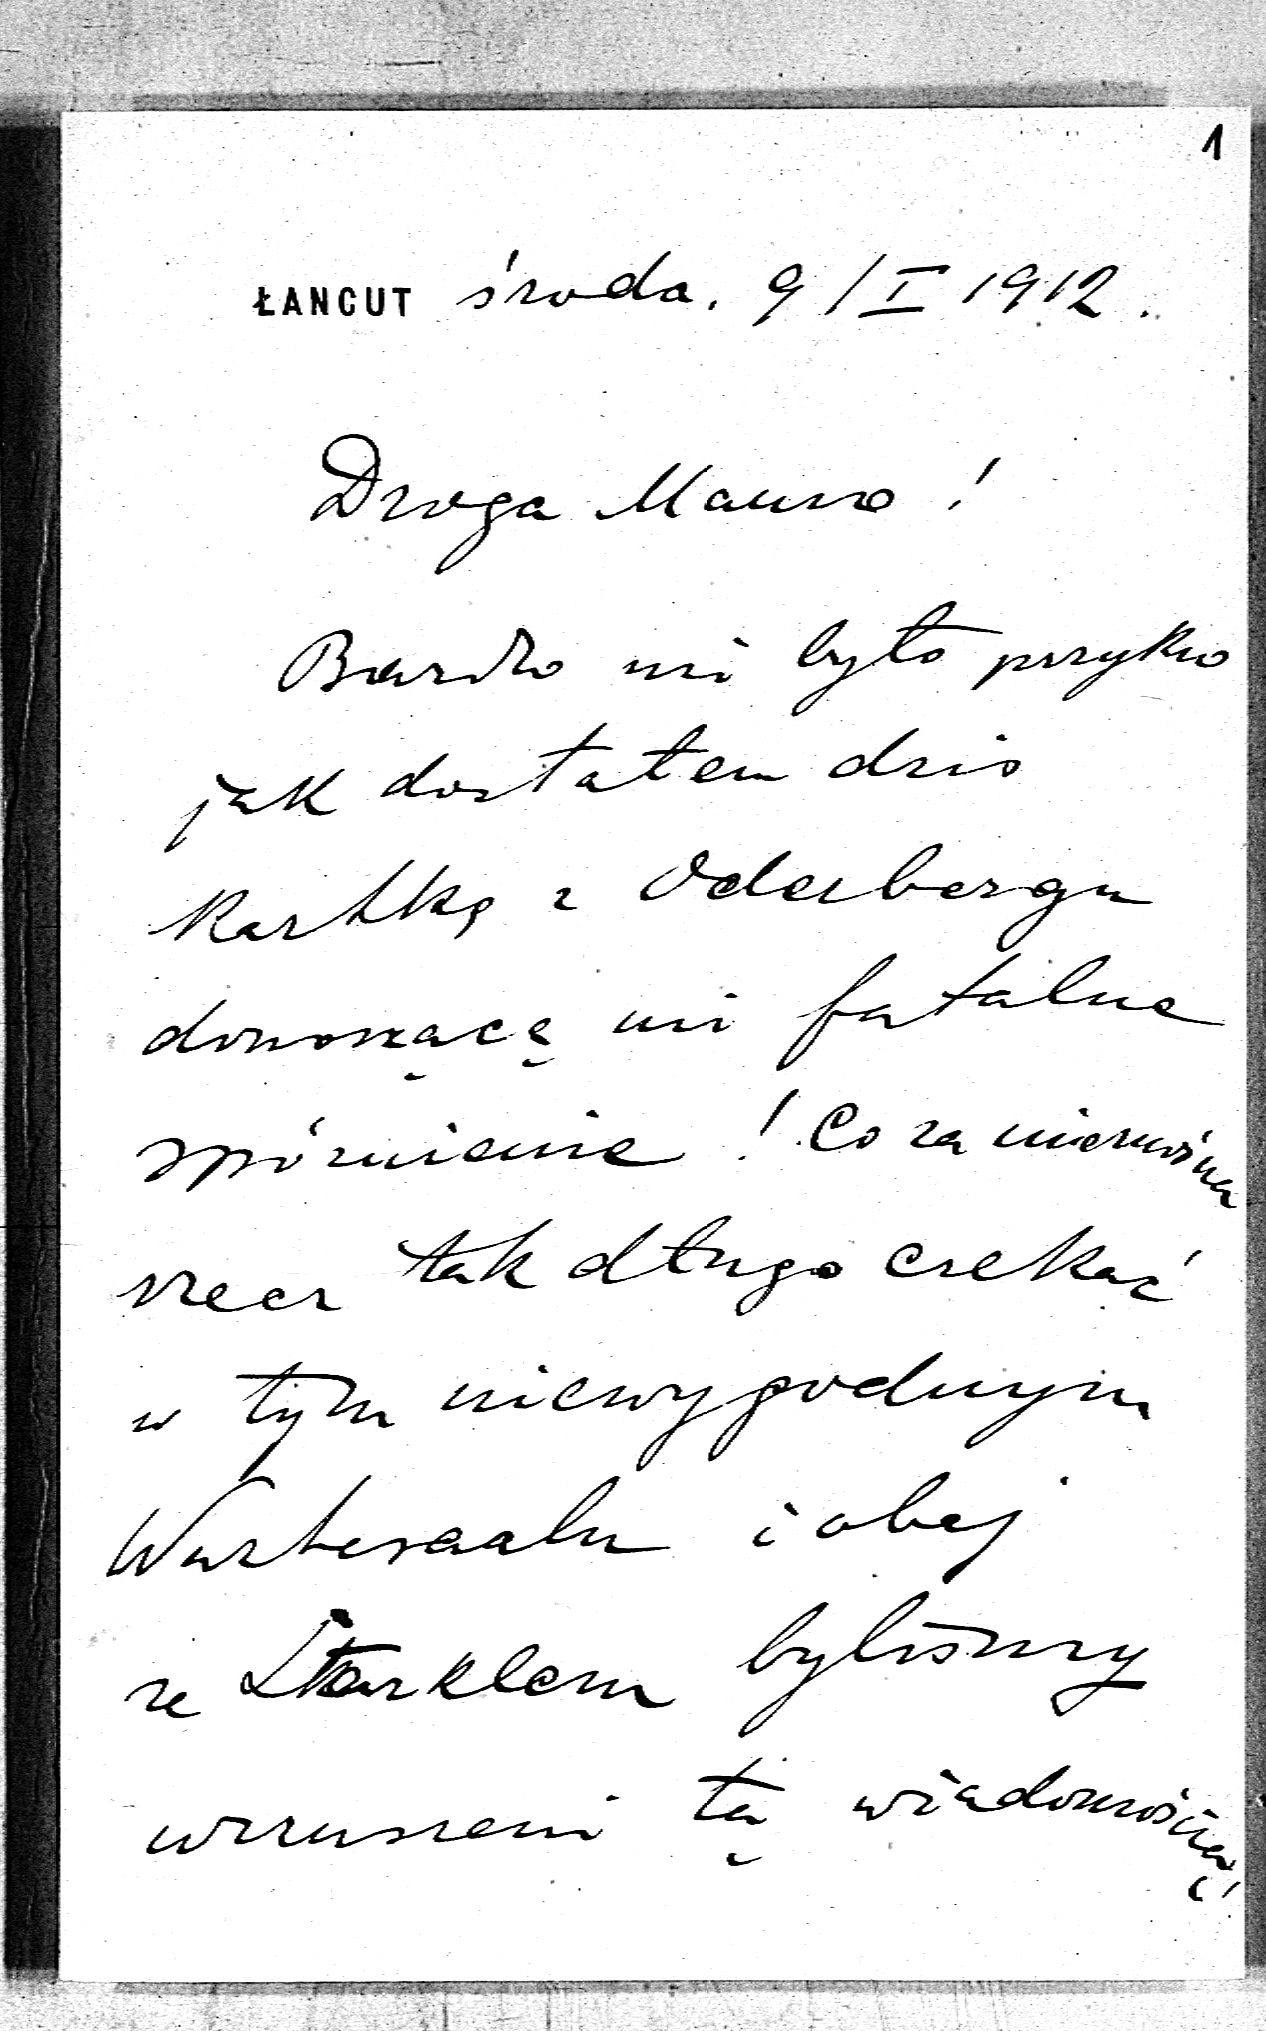 1
ŁANCUT środa. 9/I 1912.
Droga Mamo!
Bardzo mi było przykro
jak dostałem dziś
kartkę z Oderbergu
donoszącą mi fatalne
spóźnienie! Co za nieznośna
rzecz tak długo czekać
w tym niewygodnym
Wartesaalu i obaj
ze Starklem byliśmy
wzruszeni tą wiadomością!